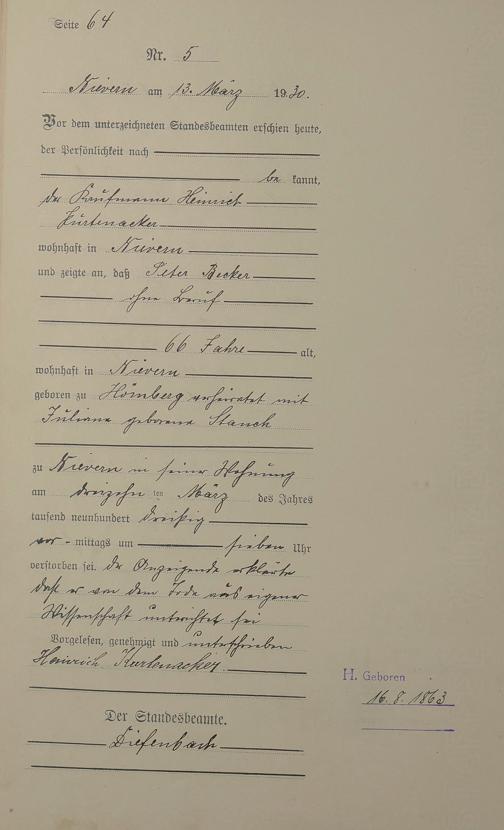 Seite 64
Nr. 5
Nievern am 13. März 1930.
Vor dem unterzeichneten Standesbeamten erschien heute,
der Persönlichkeit nach
be kannt,
der Kaufmann Heinrich
Kurtenacker
wohnhaft in Nievern
und zeigte an, daß Peter Becker
ohne Beruf
66 Jahre alt,
wohnhaft in Nievern
geboren zu Hömberg verheiratet mit
Juliana geborene Stanch
zu Nievern in seiner Wohnung
am dreizehn ten März des Jahres
tausend neunhundert dreißig
vor-mittags um sieben Uhr
verstorben sei. Der Anzeigende erklärte
daß er von dem Tode aus eigener
Wissenschaft unterrichtet sei
Vorgelesen, genehmigt und unterschrieben
Heinrich Kurtenacker
H. Geboren
16. 8. 1863
Der Standesbeamte.
Diefenbach